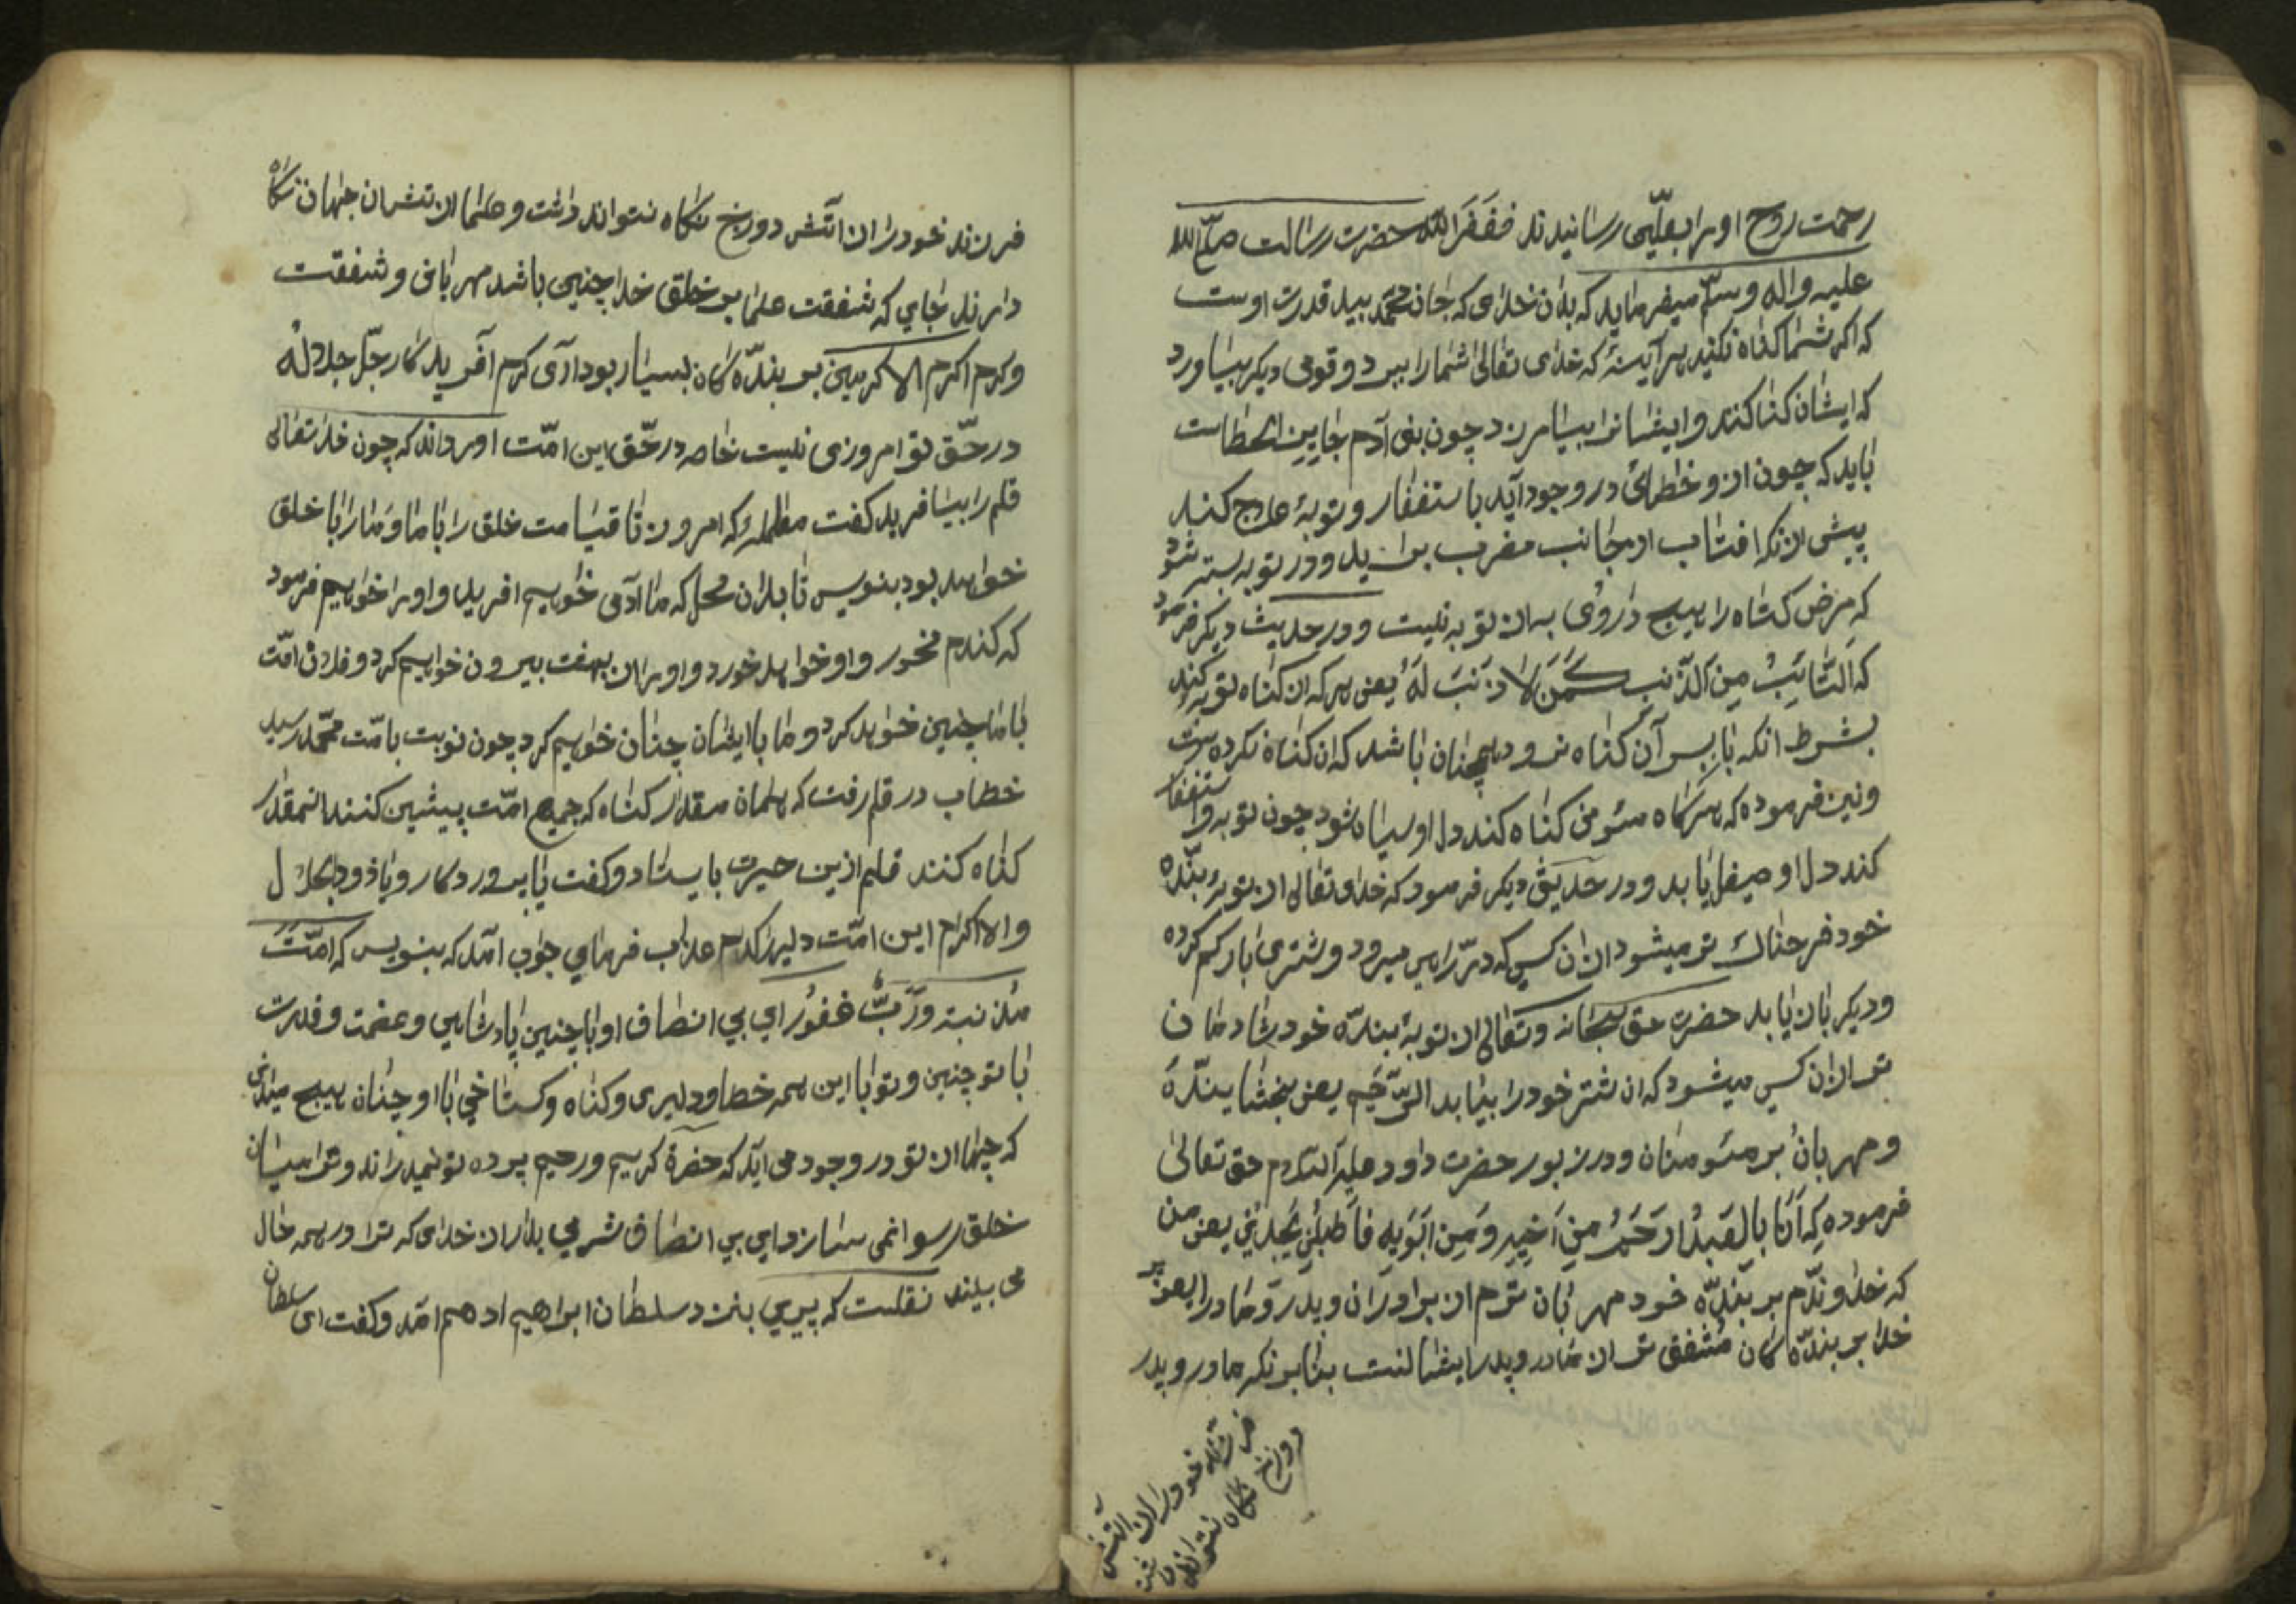 رحمت روح اورا بعلّیی رسانیدند فغفرالله حضرت رسالت صلّی الله
علیه واله وسلّم میفرماید که بدان خدای که جان محمّد بید قدرت اوست
که اکر شما کناه نکنید هرآینهٔ که خدای تعالیٰ شمارا ببرد و قومی دیکر بیاورد
که ایشان کنا کنند و ایشانرا بیامرزد چون بنی آدم جایین الخطاست
باید که چون ازو خطهائ در وجود آید باستغفار و توبهٔ علاج کند
پیش از انکه افتاب از جانب مغرب براید و در توبه بسته شود
که مرض کناه را هیچ داروئ به از توبه نیست و در حدیث دیکر فرمود
که اَلتّائبُ مِنَ الذّنب کَمَن لا ذَنبَ لَهُ یعنی هرکه از کناه توبه کند
بشرط انکه باز بسر آن کناه نرود همچنان باشد که ان کناه نکرده است
ونیز فرموده که هرکاه مئومن کناه کند دل او سیاه شود چون توبه و استغفار
کند دل او صیقل یابد و در حدیثی دیکر فرمود که خداو تعالی از توبهٔ بندّه
خود فرحناک تر میشود از ان کسی که در راهی میرود و شتری بار کم کرده
ودیکر بار یابد حضرت حق سبحانه وتعالی از توبهٔ بندّه خود شادمان
تر از ان کسی میشود که ان شتر خود را بیابد الرّحیم یعنی بخشایندّهٔ
و مهربانُ بر مئومنان و در زبور حضرت داود علیه السلام حق تعالیٰ
فرموده که اَنَا بِالعَبدُ اَرحَمُ مِن اَخیهِ وَمِن اَبَوَیهِ فَاطلُبنی تَجِدُنی یعنی من
که خداوندّم بر بندّه خود مهربان ترم از برادران و پدر و مادر یعنی
خدا بر بندّه کان مُشفق تر از مادر و پدر ایشانست بنابر انکه مادر و پدر
فرزند خود را از آتش
دوزخ نکاه نتواند داشت
فرزند خود را از اتش دوزخ نکاه نتواند داشت و علما از تش ان جهان نکاه
دارند جایی که شفقت علما بر خلق خدا چنین باشد مهربانی و شفقت
وکرم اکرم الاکرمین بر بندّه کان بسیار بود ارآی کرم آفریدکار جلّ جلالُه
در حقّ تو امروزی نیست خاصه در حقّ این امّت اورداند که چون خدا تعالی
قلم را بیافرید کفت مظلمهٔ که امروز تا قیامت خلق را با ما و ما را با خلق
خواهد بود بنویس تا بدان محل که ما ادمی خواهیم افرید و او را خواهیم فرمود
که کندم مخور و او خواهد خورد و اورا از بهشت بیرون خواهیم کرد و فلان امّت
با ما چنین خواهد کرد و ما با ایشان چنان خواهیم کرد چون نوبت بامّت محمّد رسید
خطاب در قلم رفت که همان مقدار کناه که جمیع امّت پیشین کنند انمقدار
کناه کنند قلم ازین حیرت بایستاد و کفت یا پروردکار و یا ذو الجلال
والاکرام این امّت دلیر را کدام عذاب فرمایی جواب آمد که بنویس که امّتَ
مذنبة وَرَبٌّ غفورُ ای بی انصاف او با چنین پادشاهی و عظمت و قدرت
با تو چنین و تو با این همه خطا و دلیری و کناه و کستاخی با او چنان هیچ میدانی
که چها از تو در وجود می اید که حضرة کریم و رحیم پرده تو نمیدراند و ترا میان
خلق رسوا نمی سازد ای بی انصاف شرمی بدار از خدای که ترا در همه حال
می بیند نقلست که پیری بنزد سلطان ابراهیم ادهم امد و کفت ای سلطان